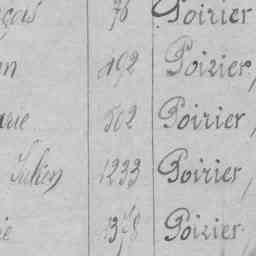 çois 76 Poirier
n 192 Poirier,
arie 502 Poirier,
Julien 1233 Poirier,
ie 1378 Poirier,